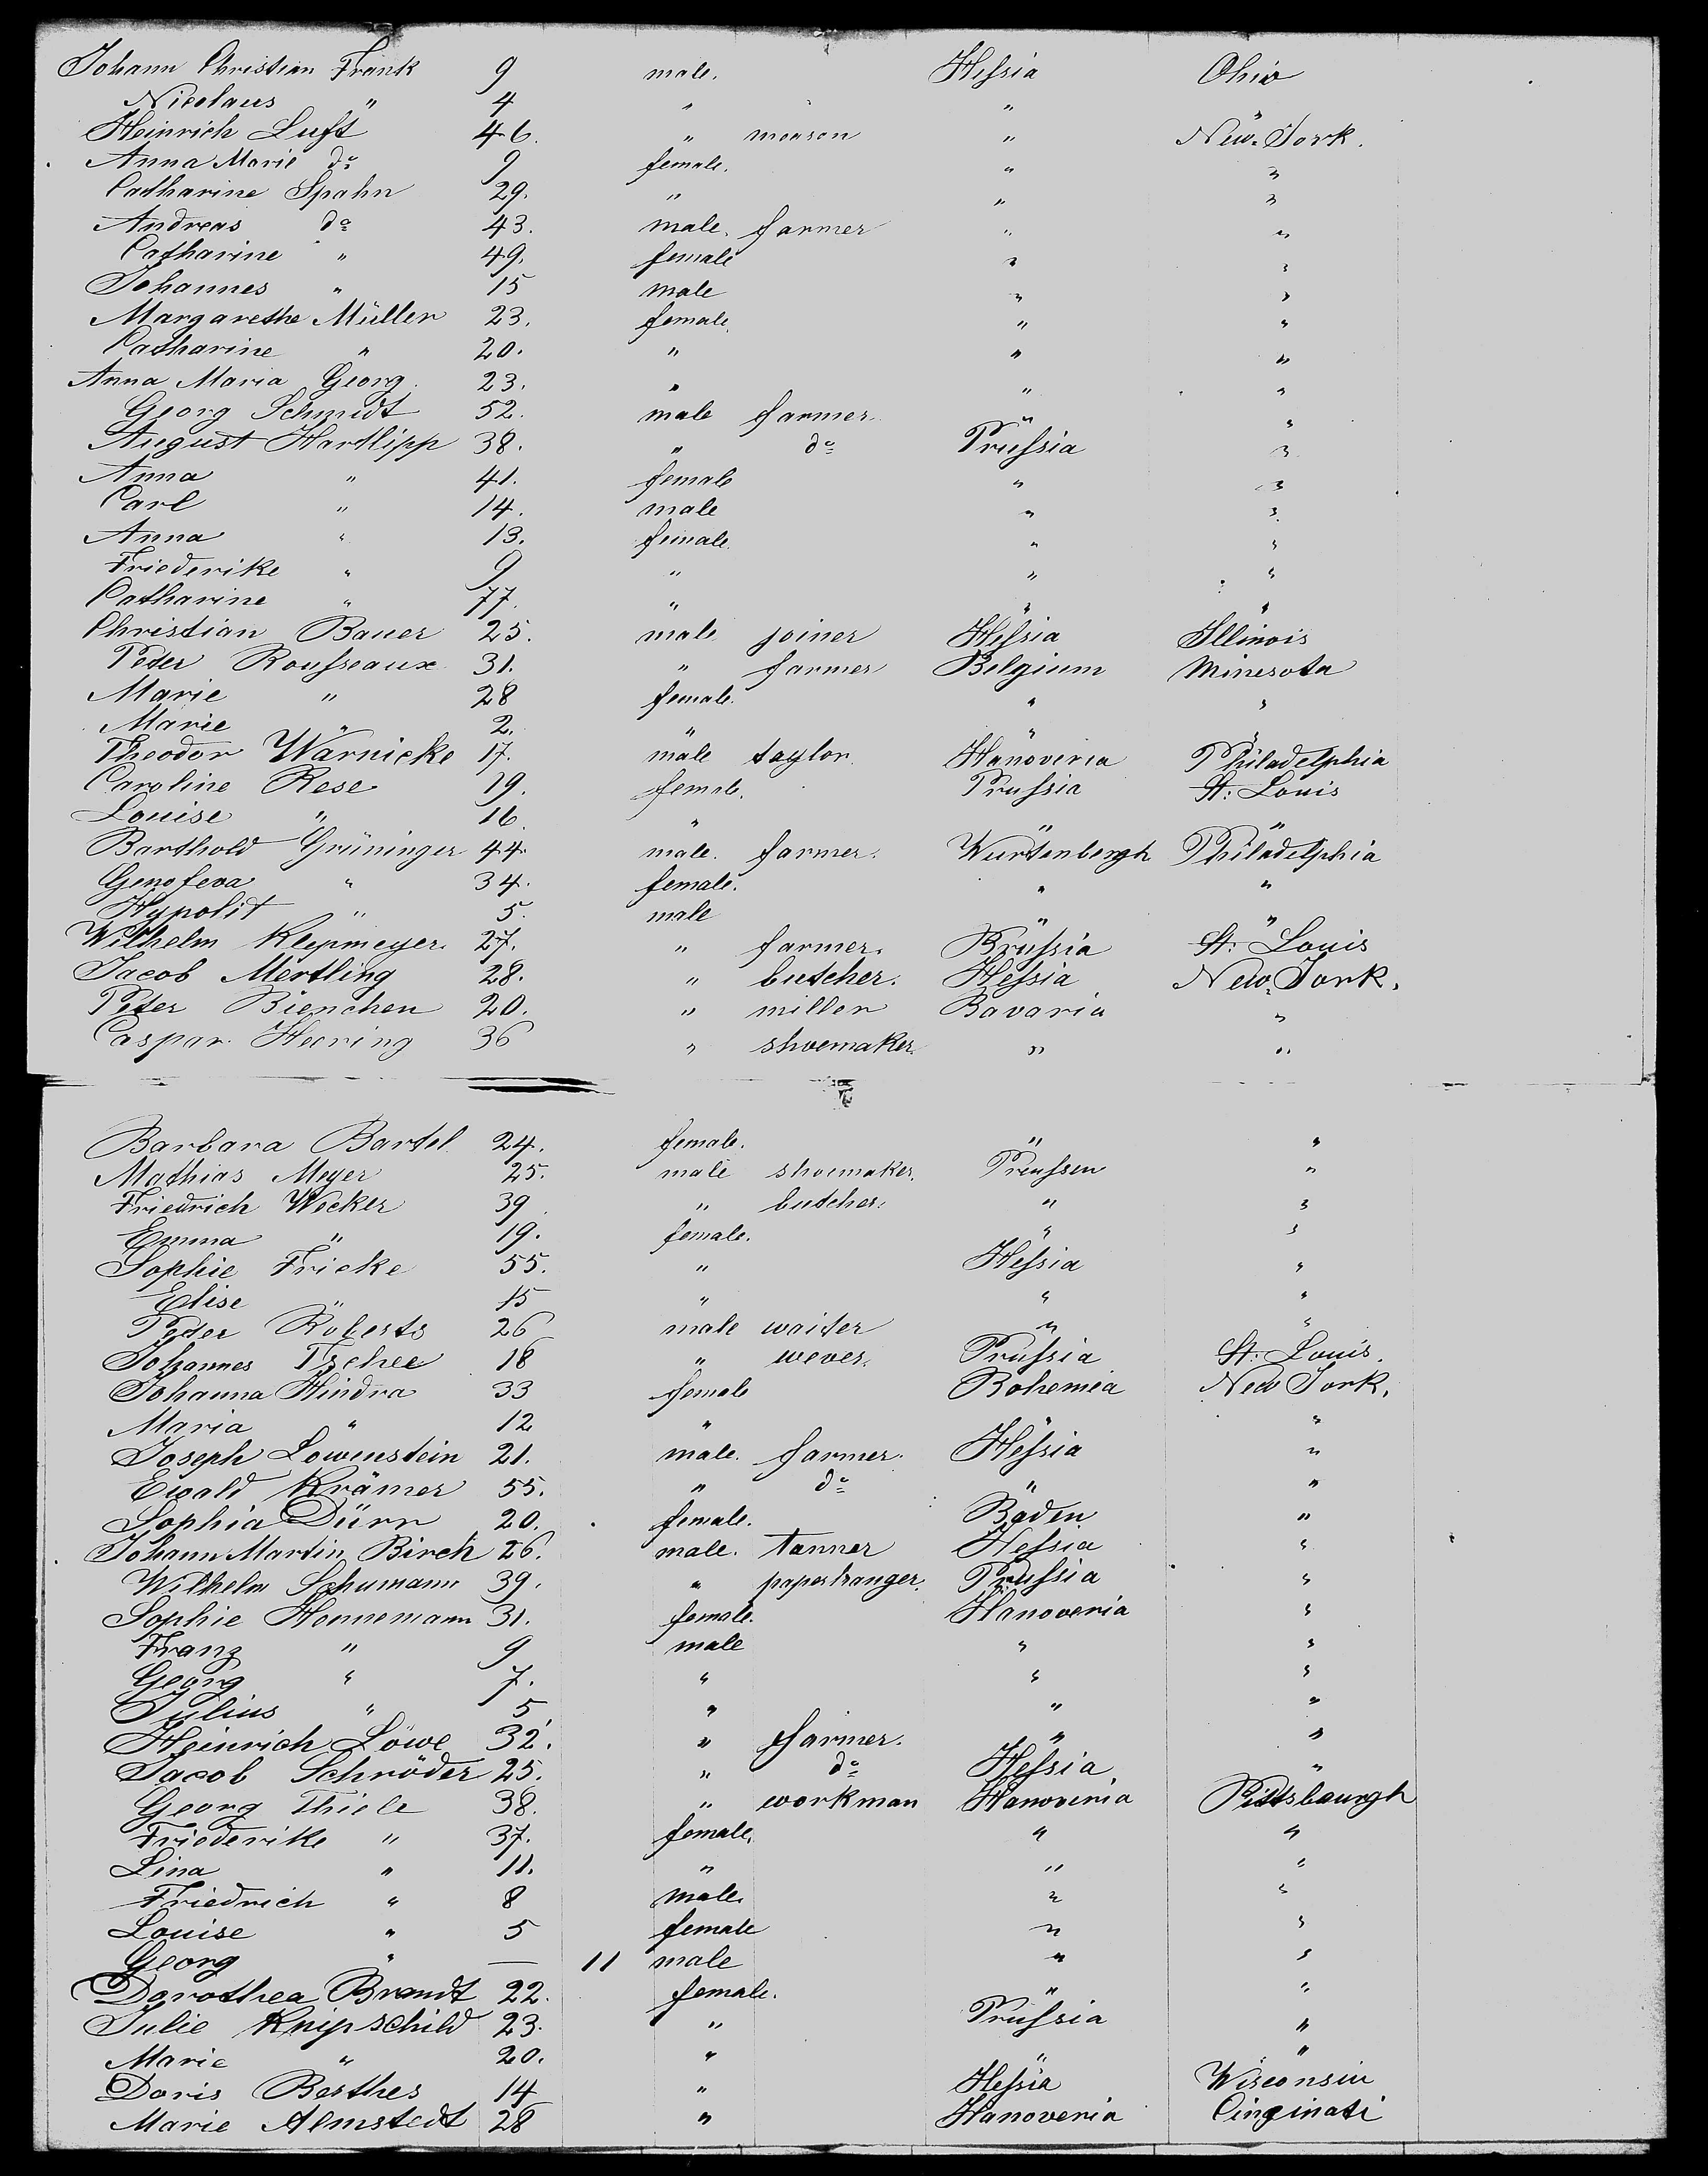 Johann Christian Frank 9 male. Hessia Ohio
Nicolaus " 4 " " "
Heinrich Luft 46. " meason " New-York.
Anna Marie do 9 female. " "
Catharine Spahn 29. " " "
Andreas do 43. male. farmer " "
Catharine " 49. female " "
Johannes " 15 male " "
Margarethe Müller 23. female. " "
Catharine " 20. " " "
Anna Maria Georg. 23. " " "
Georg Schmidt 52. male farmer. " "
August Hartlipp 38. " do Prussia "
Anna " 41. female " "
Carl " 14. male " "
Anna " 13. female. " "
Friederike " 9 " " "
Catharine " 77. " " "
Christian Bauer 25. male joiner Hessia Illinois
Peter Rousseaux 31. " farmer Belgium Minesota
Marie " 28 female. " "
Marie " 2. " " "
Theodor Warnicke 17. male taylor Hanoveria Philadelphia
Caroline Rese 19. female. Prussia St: Louis
Louise " 16. " " "
Barthold Grüninger 44 male. farmer. Wurtenbergh Philadelphia
Genofeva " 34. female. " "
Hypolit " 5. male " "
Wilhelm Klepmeyer. 27. " farmer. Prussia St: Louis
Jacob Mertling 28. " butcher. Hessia New-York.
Peter Bienchen 20. " miller Bavaria "
Caspar Heering 36 " shoemaker. " "
Barbara Bartel 24. female. " "
Mathias Meyer 25. male shoemaker. Preussen "
Friedrich Wecker 39 " butcher. " "
Emma " 19. female. " "
Sophie Fricke 55. " Hessia "
Elise " 15 " " "
Peter Roberts 26 male waiter " "
Johannes Tschee 18 " wever. Prussia St: Louis.
Johanna Hindra 33 female Bohemia New York.
Maria " 12 " " "
Joseph Löwenstein 21. male. farmer. Hessia "
Ewald Krämer 55. " do " "
Sophia Dürr 20. female. Baden "
Johann Martin Birch 26. male. tanner Hessia "
Wilhelm Schumann 39. " paperhanger. Prussia "
Sophie Hennemann 31. female. Hanoveria "
Franz " 9 male " "
Georg " 7. " " "
Julius " 5 " " "
Heinrich Löwe 32. " farmer. " "
Jacob Schröder 25. " do Hessia "
Georg Thiele 38. " workman Hanoveria Pittsbaurgh
Friederike " 37. female. " "
Lina " 11. " " "
Friedrich " 8 male. " "
Louise " 5 female " "
Georg " — 11 male " "
Dorothea Brandt 22. female. " "
Julie Knipschild 23. " Prussia "
Marie " 20. " " "
Doris Berthes 14 " Hessia Wisconsin
Marie Almstedt 28 " Hanoveria Cinginati